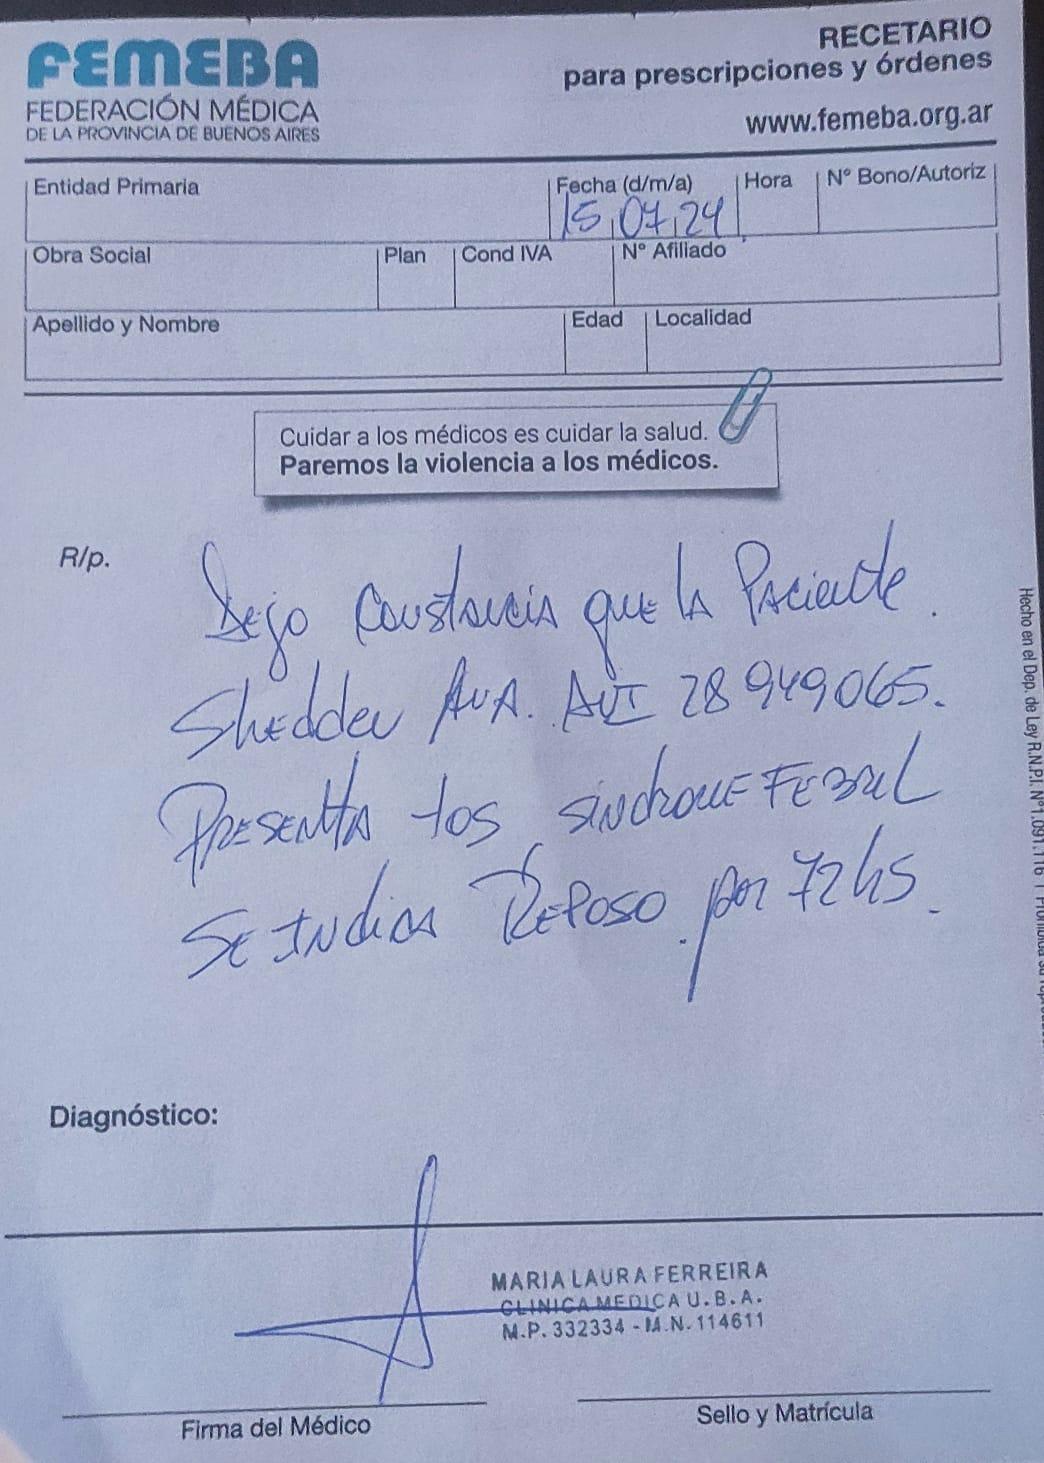 FEMEBA
FEDERACIÓN MÉDICA
DE LA PROVINCIA DE BUENOS AIRES
RECETARIO
para prescripciones y órdenes
www.femeba.org.ar
Entidad Primaria
Fecha (d/m/a)
Hora
N° Bono/Autoriz
15,07,24
Obra Social
Plan
Cond IVA
N° Afiliado
Apellido y Nombre
Edad
Localidad
Cuidar a los médicos es cuidar la salud.
Paremos la violencia a los médicos.
R/p.
Dejo Constancia que la Paciente.
Shedden Ana. 28949065.
Presenta tos síndrome Febril
Se Indica Reposo por 72hs.
Diagnóstico:
MARIA LAURA FERREIRA
CLINICA MEDICA U.B.A.
M.P. 332334 - M.N. 114611
Firma del Médico
Sello y Matrícula
Hecho en el Dep. de Ley R.N.P.I. Nº1.091.116